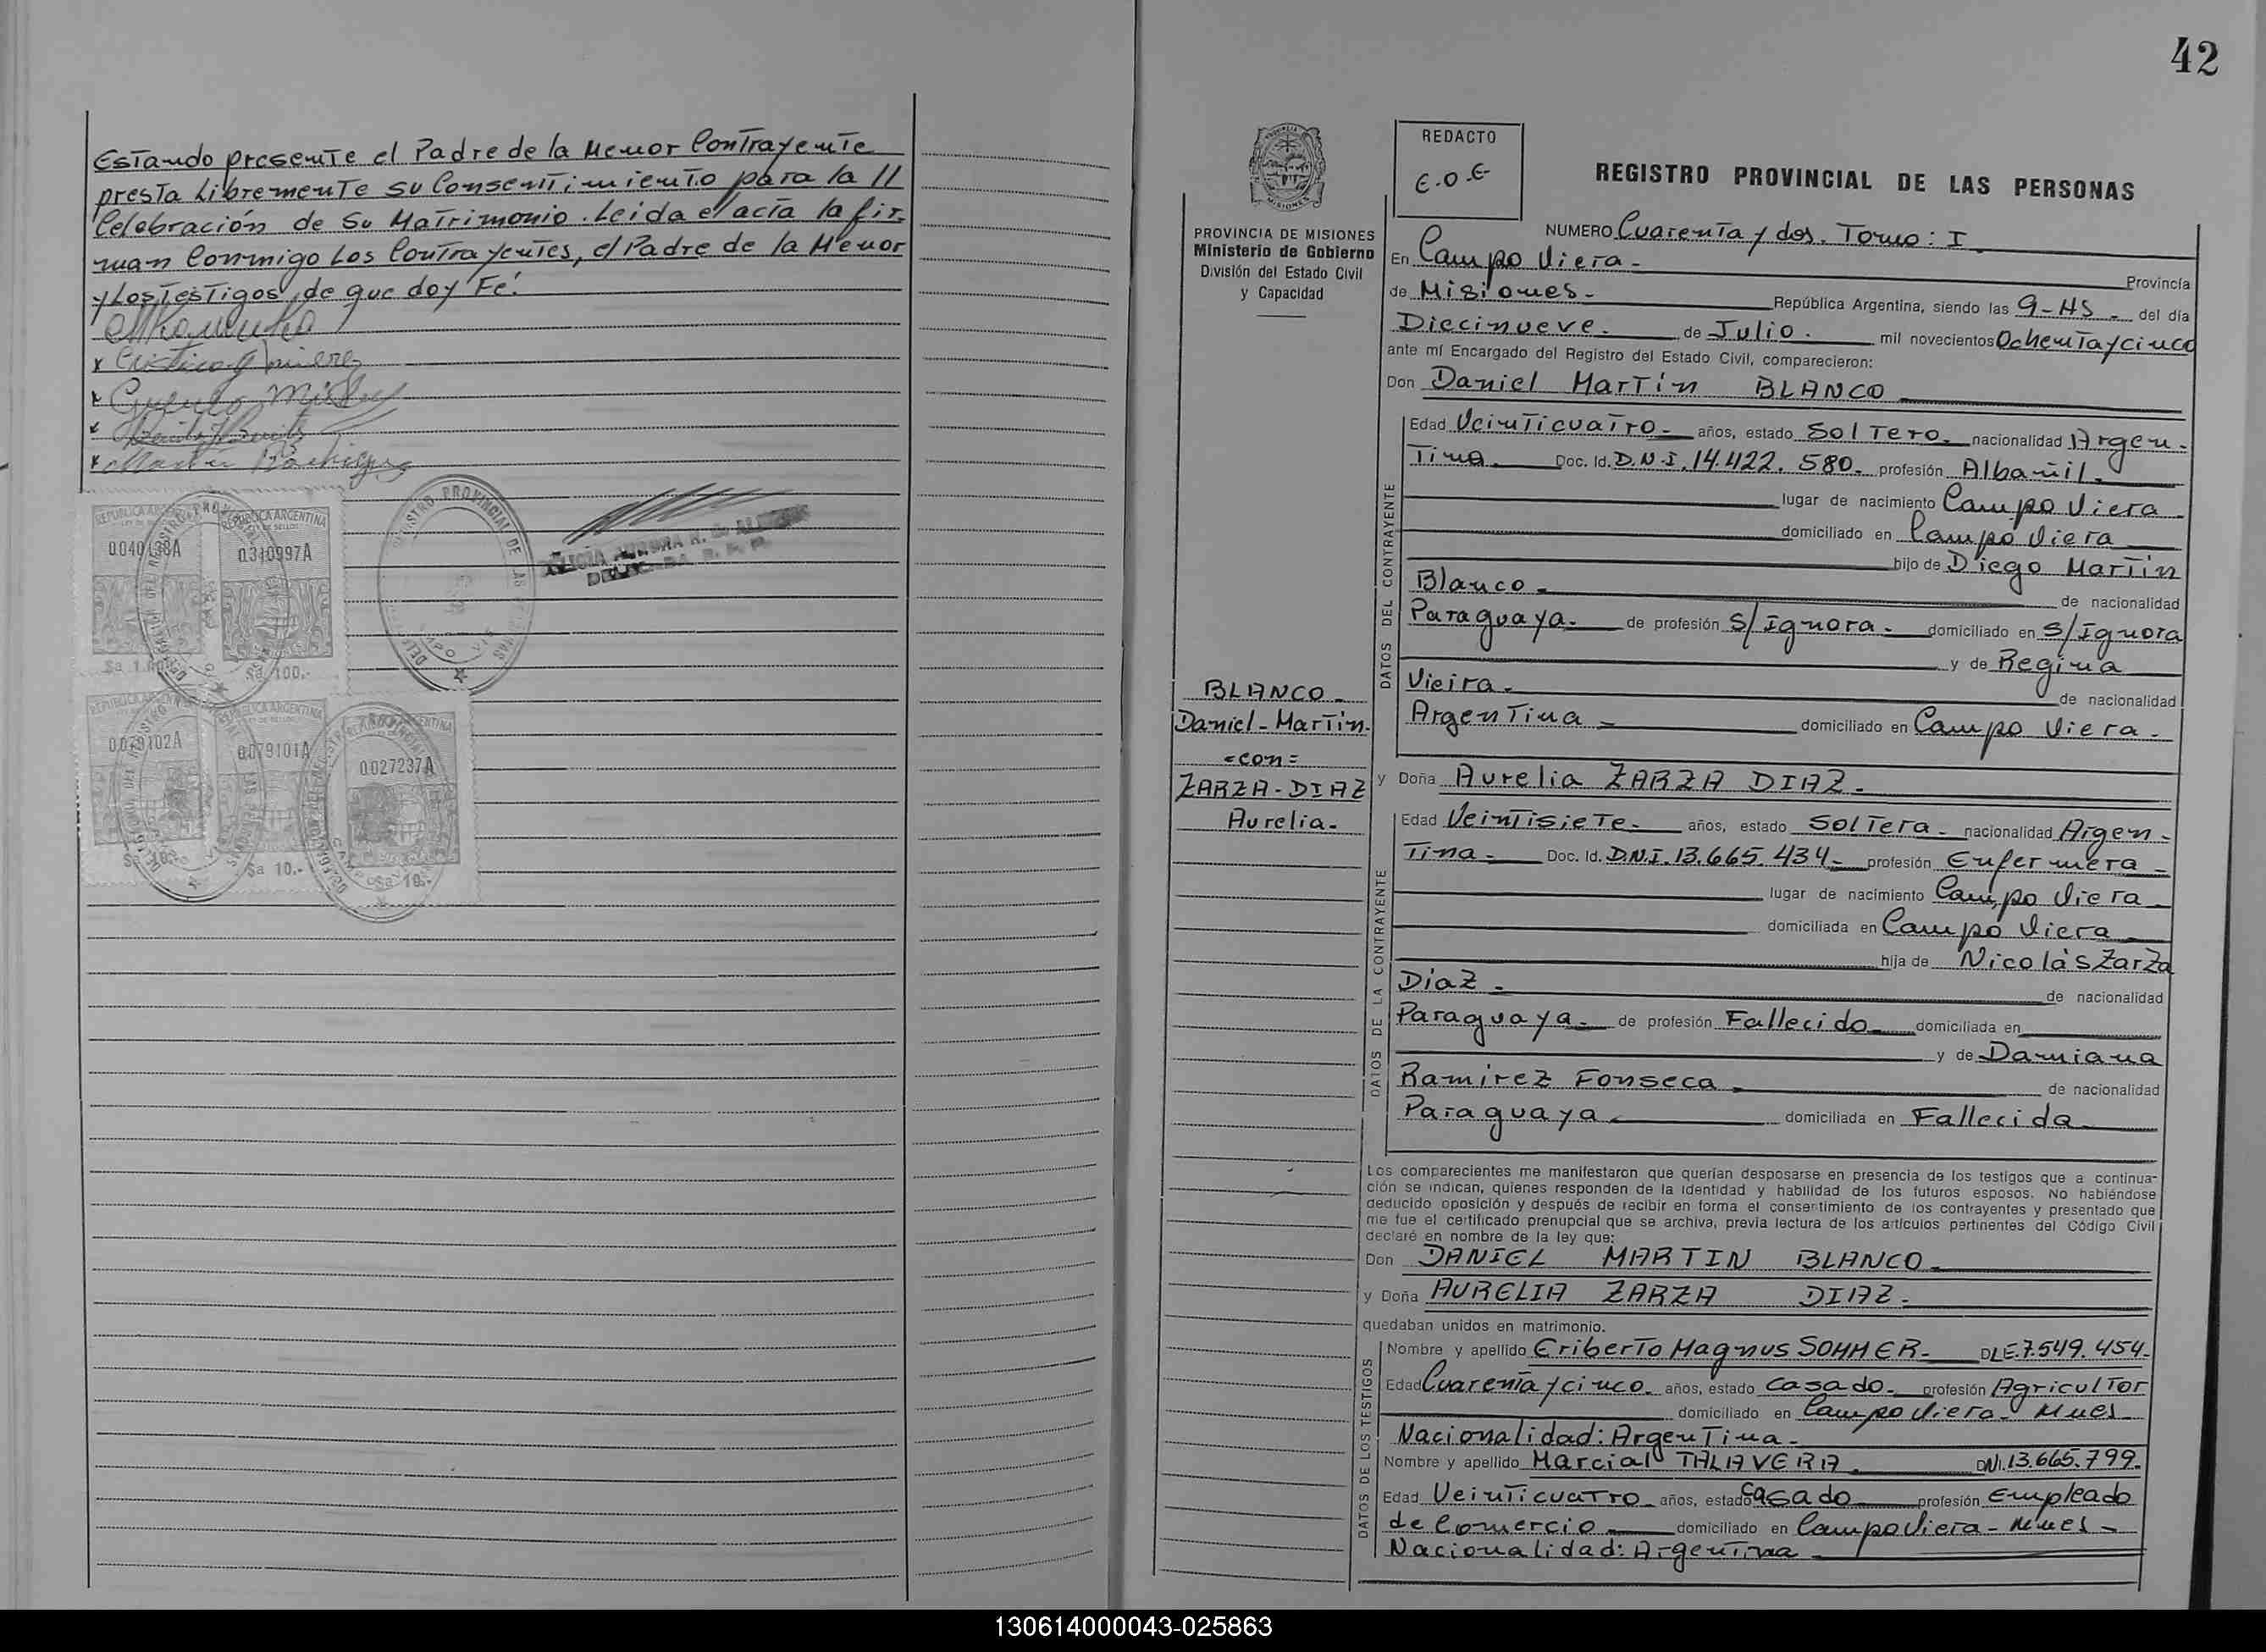 Estando presente el Padre de la Menor Contrayente
presta Libremente su Consentimiento para la //
Celebración de Su Matrimonio. Leida el acta la fir-
man Conmigo Los Contrayentes, el Padre de la Menor
y Los Testigos, de que doy Fé.
REPUBLICA ARGENTINA
0040138A
0310997A
Sa 100.-
REGISTRO PROVINCIAL DE LAS PERSONAS
REPUBLICA ARGENTINA
0079102A
0079101A
0027237A
Sa 10.-
Sa 10.-
Sa 10.-
42
PROVINCIA DE MISIONES
Ministerio de Gobierno
División del Estado Civil
y Capacidad
REDACTO
E.O.E
REGISTRO PROVINCIAL DE LAS PERSONAS
NUMERO Cuarenta y dos. Tomo: I
En Campo Viera - Provincia
de Misiones - República Argentina, siendo las 9-HS - del día
Diecinueve. de Julio. mil novecientos Ochenta y cinco
ante mí Encargado del Registro del Estado Civil, comparecieron:
Don Daniel Martín BLANCO
DATOS DEL CONTRAYENTE
Edad Veinticuatro - años, estado Soltero - nacionalidad Argen-
tina. Doc. Id. D.N.I. 14.422.580 - profesión Albañil.
lugar de nacimiento Campo Viera
domiciliado en Campo Viera
hijo de Diego Martín
Blanco - de nacionalidad
Paraguaya - de profesión S/Ignora - domiciliado en S/Ignora
y de Regina
Vieira - de nacionalidad
Argentina - domiciliado en Campo Viera -
BLANCO -
Daniel - Martín.
=con=
ZARZA - DIAZ
Aurelia -
y Doña Aurelia ZARZA DIAZ -
DATOS DE LA CONTRAYENTE
Edad Veintisiete - años, estado Soltera - nacionalidad Argen-
tina - Doc. Id. D.N.I. 13.665.434 - profesión Enfermera -
lugar de nacimiento Campo Viera
domiciliada en Campo Viera
hija de Nicolás Zarza
Diaz - de nacionalidad
Paraguaya - de profesión Fallecido domiciliada en
y de Damiana
Ramirez Fonseca - de nacionalidad
Paraguaya - domiciliada en Fallecida
Los comparecientes me manifestaron que querían desposarse en presencia de los testigos que a continua-
ción se indican, quienes responden de la identidad y habilidad de los futuros esposos. No habiéndose
deducido oposición y después de recibir en forma el consertimiento de los contrayentes y presentado que
me fue el certificado prenupcial que se archiva, previa lectura de los artículos pertinentes del Código Civil
declaré en nombre de la ley que:
Don DANIEL MARTIN BLANCO -
y Doña AURELIA ZARZA DIAZ -
quedaban unidos en matrimonio.
DATOS DE LOS TESTIGOS
Nombre y apellido Eriberto Magnus SOMMER - DLE. 7.549.454 -
Edad Cuarenta y cinco - años, estado Casado - profesión Agricultor
domiciliado en Campo Viera - Mnes
Nacionalidad: Argentina -
Nombre y apellido Marcial TALAVERA DNI. 13.665.799.
Edad Veinticuatro - años, estado Casado profesión Empleado
de Comercio domiciliado en Campo Viera - Mnes -
Nacionalidad: Argentina
130614000043-025863